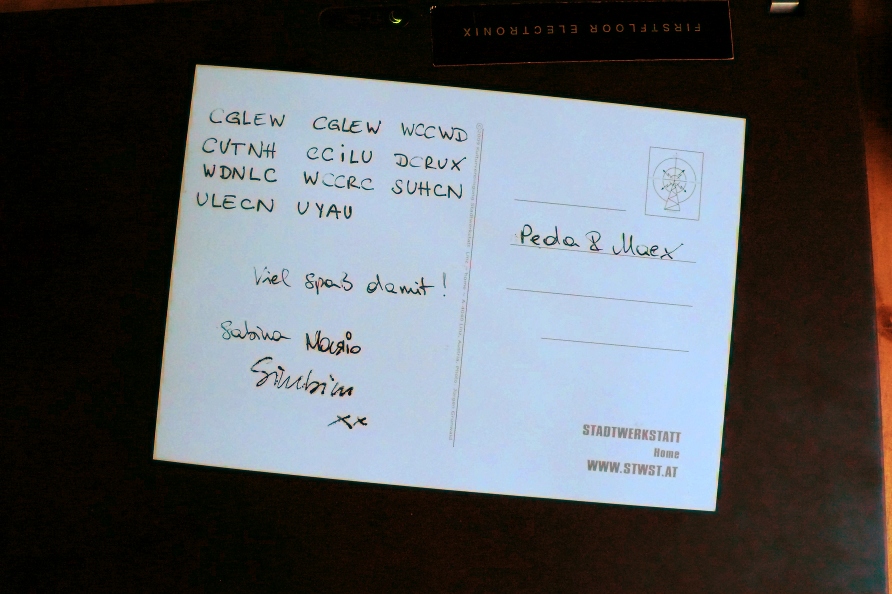 FIRSTFLOOR ELECTRONIX
CGLEW CGLEW WCCWD
CUTNH CCiLU DCRUX
WDNLC WCCRC SUHCN
ULECN UYAU
Viel Spaß damit!
Sabina Mario
xx
Peda & Maex
STADTWERKSTATT
Home
WWW.STWST.AT